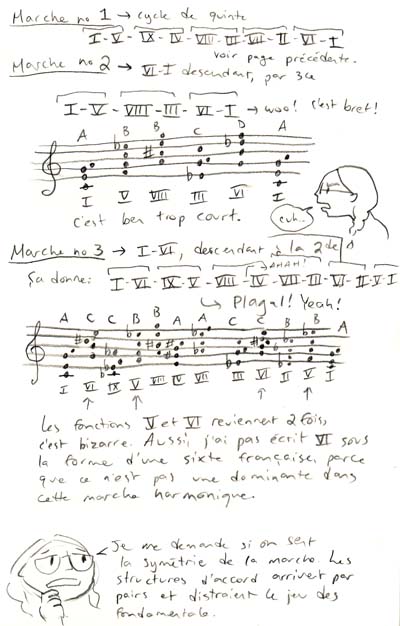 Marche no 1 → cycle de quinte
I - V - IX - IV - VIII - III - VII - II - VI - I
voir page précédente.
Marche no 2 → VI-I descendant, par 3ce
I - V - VIII - III - VI - I → woo! c'est bref!
A B B C D A
I V VIII III VI I
c'est ben trop court.
euh..
Marche no 3 → I-VI, descendant à la 2de
AHAH!
Sa donne: I-VI-IX-V-VIII-IV-VII-III-VI-II-V-I
↳ Plagal! Yeah!
A C C B B A A C C B B A
I VI IX V VIII IV VII III VI II V I
Les fonctions V et VI reviennent 2 fois,
c'est bizarre. Aussi, j'ai pas écrit VI sous
la forme d'une sixte française, parce
que ce n'est pas une dominante dans
cette marche harmonique.
Je me demande si on sent
la symétrie de la marche. Les
structures d'accord arrivent par
pairs et distraient le jeu des
fondamentale.